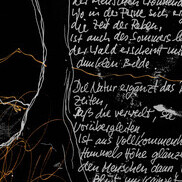 der Menschen wohnen
Wo in die Ferne sich er
die Zeit der Reben,
ist auch des Sommers le
der Wald erscheint mit
dunklem Bilde
Die Natur ergänzt das
Zeiten,
daß die verweilt, sie
vorübergleiten
Ist aus Vollkommenhe
Himmels Höhe glänz
den Menschen dann